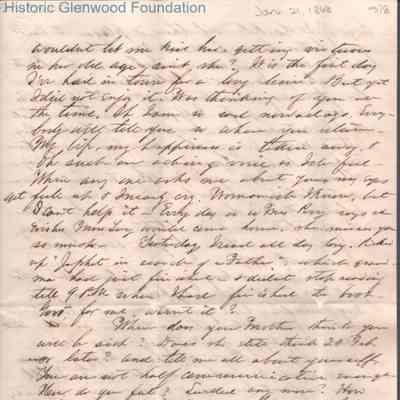 Historic Glenwood Foundation
June 21, 1868
wouldn't let me kiss her getting virtuous
in her old age, aint she? It is the first day
I've had in town for a long time. But yet
I did not enjoy it. Was thinking of you all
the time. I am so sad nowadays. Every
body will tell you so when you return.
My life, my happiness is away &
Oh such an aching voice as I do feel.
When any one asks me about you my eyes
get full up & I nearly cry. Womanish I know, but
I can't help it. Every day or so Mrs Roy says
wishes Miss would come home, she misses you
so much. Yesterday I read all day long. Picked
up "Japhet in search of a Father", which
ma had just finished & didn't stop reading
till 9 P.M. when I had finished the book
Good for me, warn't it?
When does your Mother think you
will be sick? Does she still think 20 Feb.
or later? and tell me all about yourself.
You are not half communicative enough.
How do you feel? any more? How